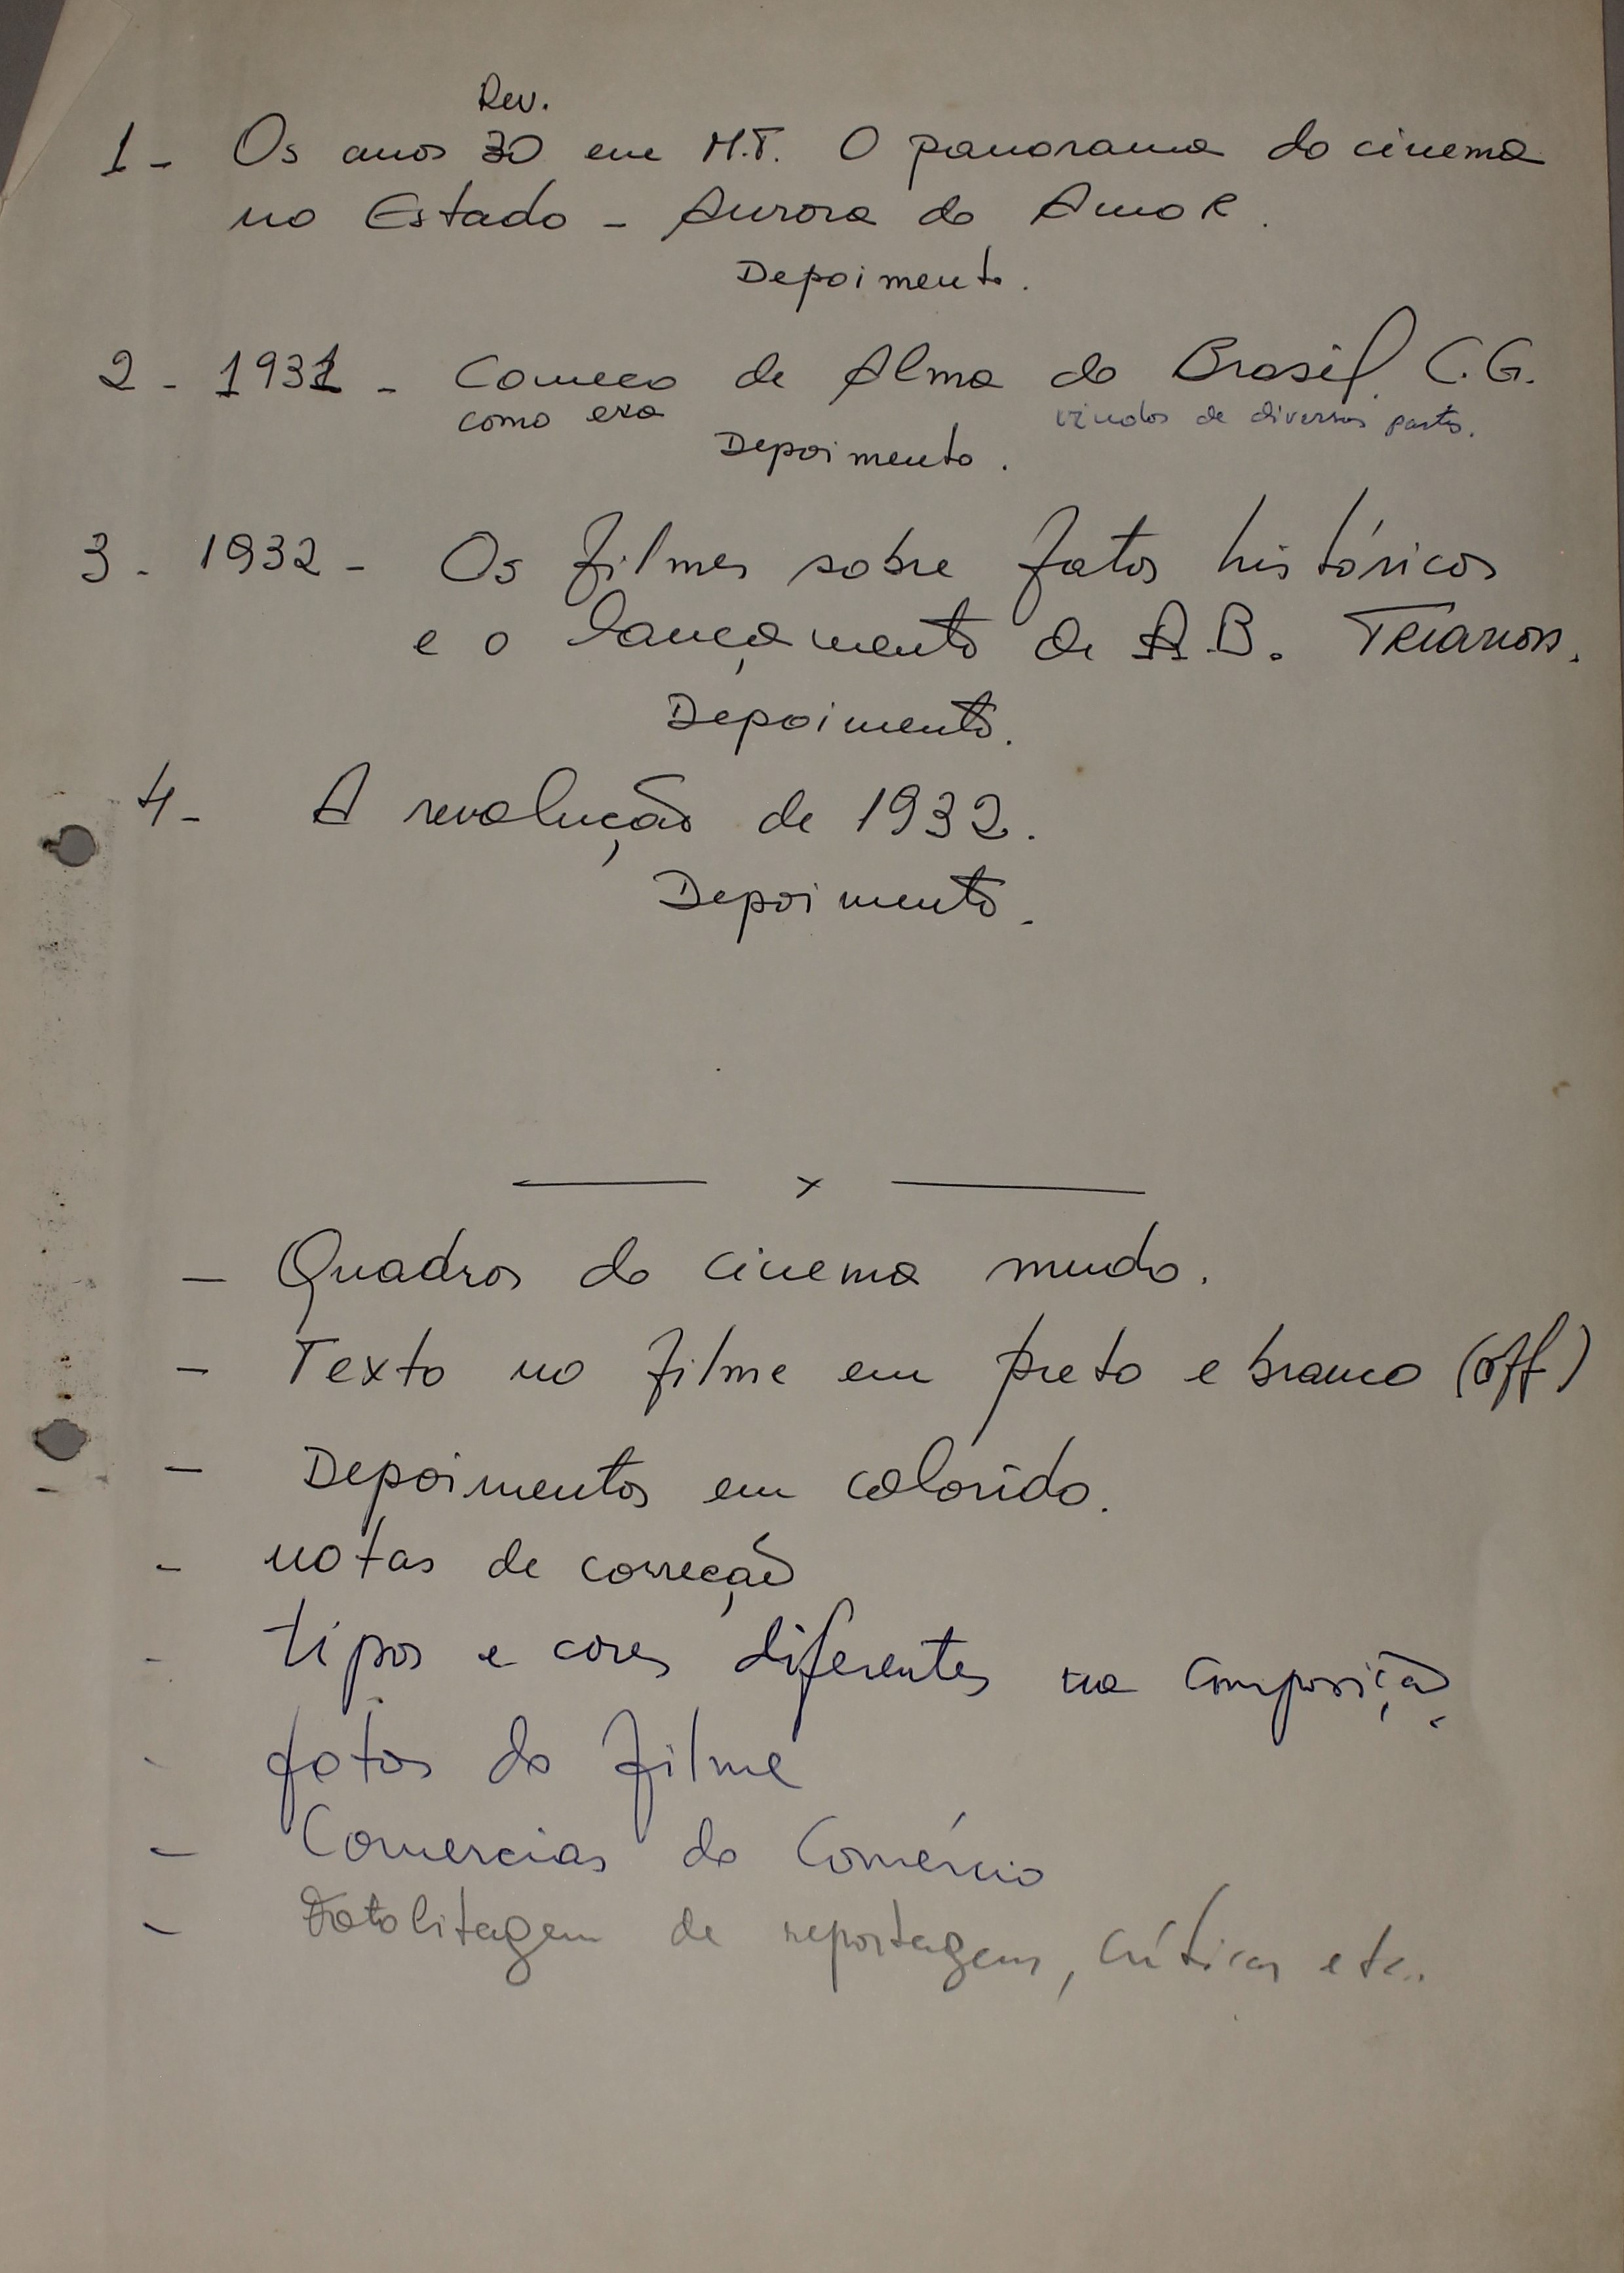 Rev.
1 - Os anos 30 em M.T. O panorama do cinema
no Estado - Aurora do Amor.
Depoimento.
2 - 1931 - Começo de Alma do Brasil. C.G.
como era vindos de diversas partes.
Depoimento.
3 - 1932 - Os filmes sobre fatos históricos
e o lançamento de A.B. Trianon.
Depoimento.
4 - A revolução de 1932.
Depoimento.
— x —
— Quadros do cinema mudo.
— Texto no filme em preto e branco (off)
— Depoimentos em colorido.
- notas de correção
- tipos e cores diferentes na composição.
- fotos do filme
— Comerciais do Comércio
— Fotolitagem de reportagens, críticas etc.